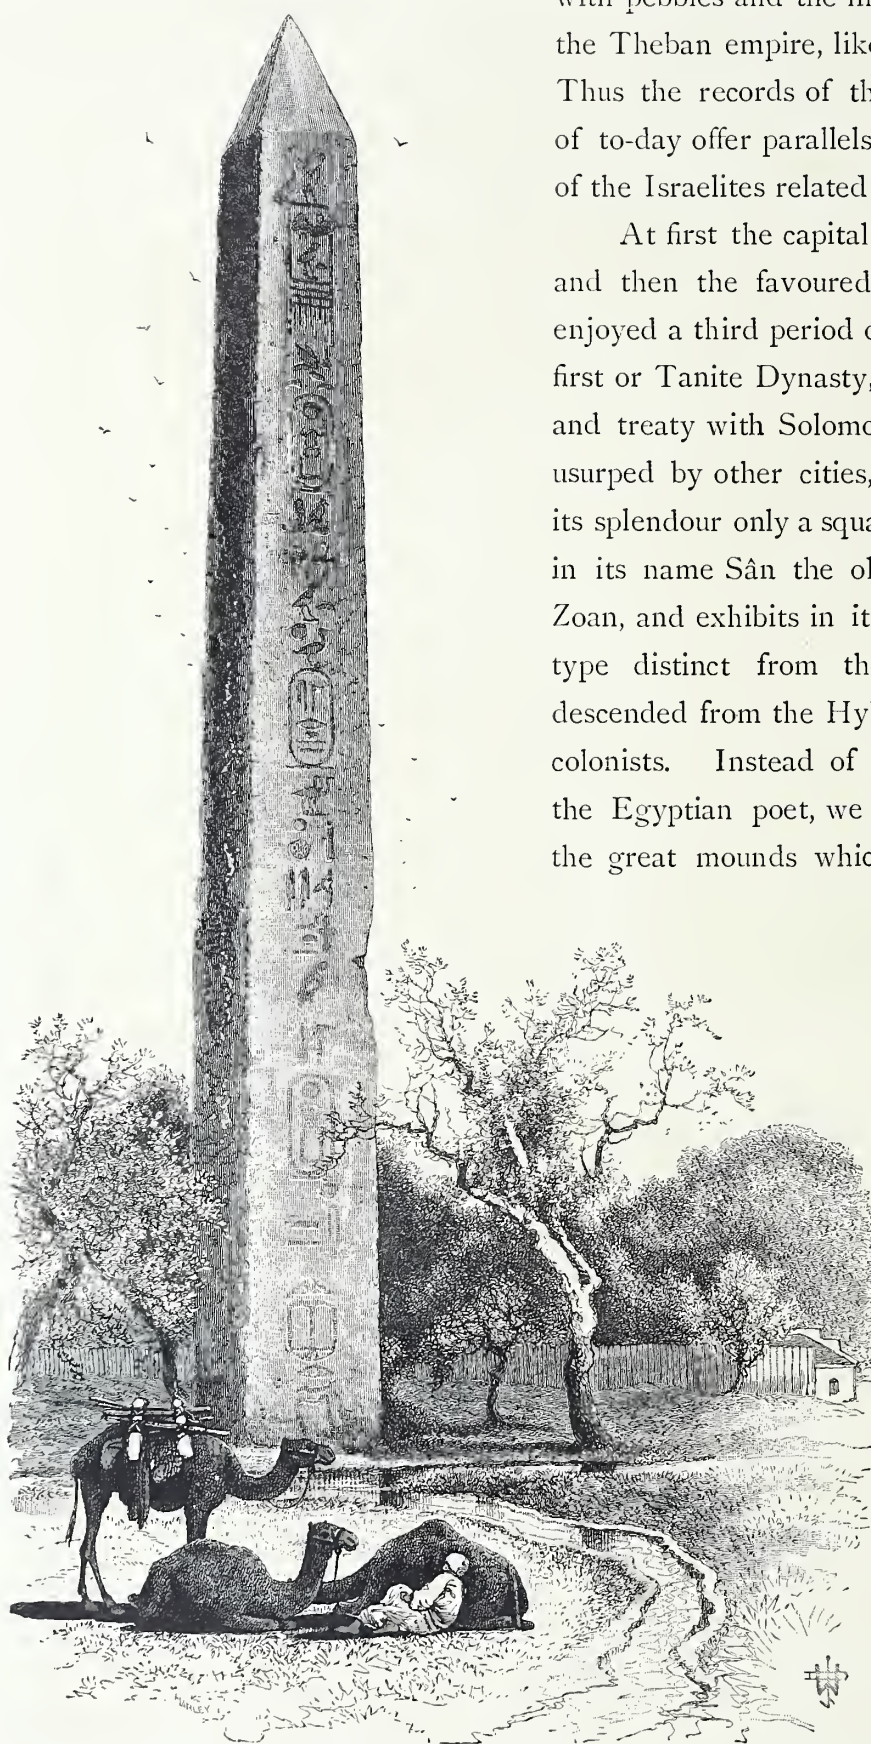 the Theban empire, like
Thus the records of th
of to-day offer parallels
of the Israelites related
At first the capital
and then the favoured
enjoyed a third period o
first or Tanite Dynasty,
and treaty with Solomo
usurped by other cities,
its splendour only a squa
in its name Sân the ol
Zoan, and exhibits in it
type distinct from th
descended from the Hy
colonists. Instead of
the Egyptian poet, we
the great mounds whic